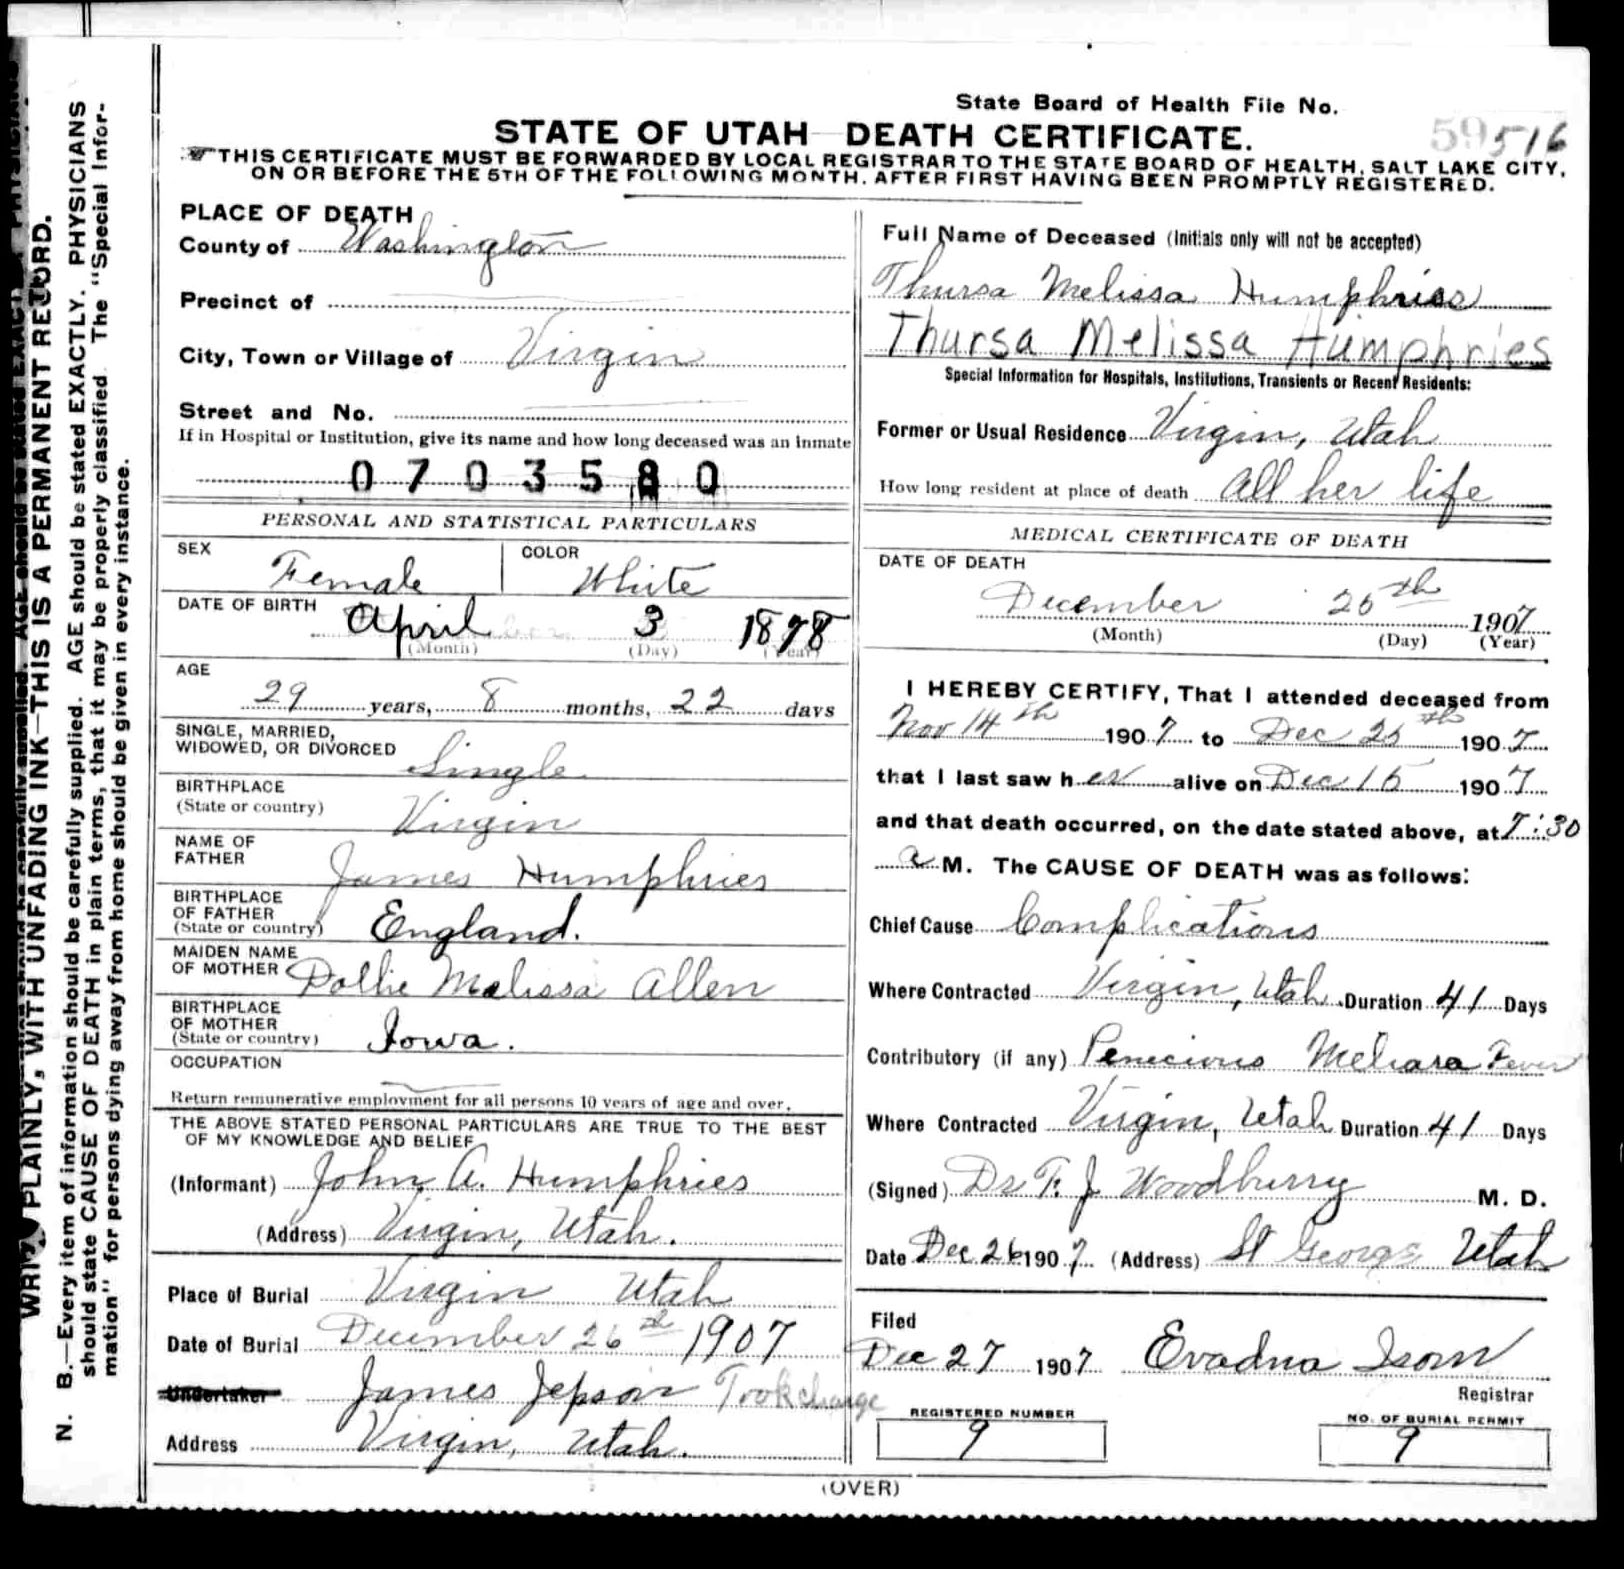 State Board of Health File No.
59516
STATE OF UTAH—DEATH CERTIFICATE.
THIS CERTIFICATE MUST BE FORWARDED BY LOCAL REGISTRAR TO THE STATE BOARD OF HEALTH, SALT LAKE CITY,
ON OR BEFORE THE 5TH OF THE FOLLOWING MONTH, AFTER FIRST HAVING BEEN PROMPTLY REGISTERED.
WRITE PLAINLY, WITH UNFADING INK—THIS IS A PERMANENT RECORD.
N. B.—Every item of information should be carefully supplied. AGE should be stated EXACTLY. PHYSICIANS
should state CAUSE OF DEATH in plain terms, that it may be properly classified. The "Special Infor-
mation" for persons dying away from home should be given in every instance.
PLACE OF DEATH
County of Washington
Precinct of
City, Town or Village of Virgin
Street and No.
If in Hospital or Institution, give its name and how long deceased was an inmate
0703580
PERSONAL AND STATISTICAL PARTICULARS
SEX Female COLOR White
DATE OF BIRTH April 3 1878
(Month) (Day) (Year)
AGE
29 years, 8 months, 22 days
SINGLE, MARRIED,
WIDOWED, OR DIVORCED Single
BIRTHPLACE
(State or country) Virgin
NAME OF
FATHER James Humphries
BIRTHPLACE
OF FATHER
(State or country) England.
MAIDEN NAME
OF MOTHER Dollie Melissa Allen
BIRTHPLACE
OF MOTHER
(State or country) Iowa.
OCCUPATION
Return remunerative employment for all persons 10 years of age and over.
THE ABOVE STATED PERSONAL PARTICULARS ARE TRUE TO THE BEST
OF MY KNOWLEDGE AND BELIEF
(Informant) John A. Humphries
(Address) Virgin, Utah.
Place of Burial Virgin Utah
Date of Burial December 26th 1907
Undertaker James Jepson Took charge
Address Virgin, Utah.
Full Name of Deceased (Initials only will not be accepted)
Thursa Melissa Humphries
Thursa Melissa Humphries
Special Information for Hospitals, Institutions, Transients or Recent Residents:
Former or Usual Residence Virgin, Utah
How long resident at place of death All her life
MEDICAL CERTIFICATE OF DEATH
DATE OF DEATH
December 25th 1907
(Month) (Day) (Year)
I HEREBY CERTIFY, That I attended deceased from
Nov 14th 1907 to Dec 25th 1907
that I last saw her alive on Dec 15 1907
and that death occurred, on the date stated above, at 7:30
a M. The CAUSE OF DEATH was as follows:
Chief Cause Complications
Where Contracted Virgin, Utah Duration 41 Days
Contributory (if any) Penecious Meliara Fever
Where Contracted Virgin, Utah Duration 41 Days
(Signed) Dr F. J Woodburry M. D.
Date Dec 26 1907 (Address) St George Utah
Filed
Dec 27 1907 Evadna Isom
Registrar
REGISTERED NUMBER
9
NO. OF BURIAL PERMIT
9
(OVER)